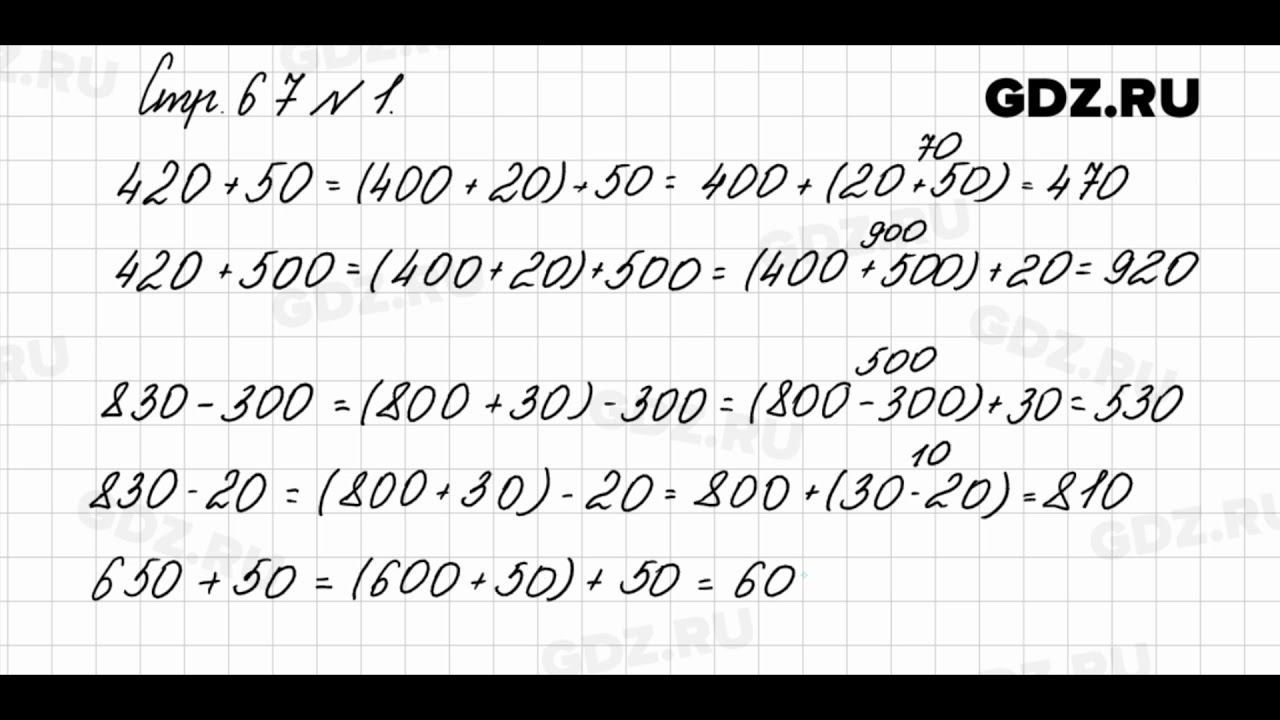 Стр. 67 № 1.
GDZ.RU
70
420 + 50 = (400 + 20) + 50 = 400 + (20 + 50) = 470
900
420 + 500 = (400 + 20) + 500 = (400 + 500) + 20 = 920
500
830 - 300 = (800 + 30) - 300 = (800 - 300) + 30 = 530
10
830 - 20 = (800 + 30) - 20 = 800 + (30 - 20) = 810
650 + 50 = (600 + 50) + 50 = 60